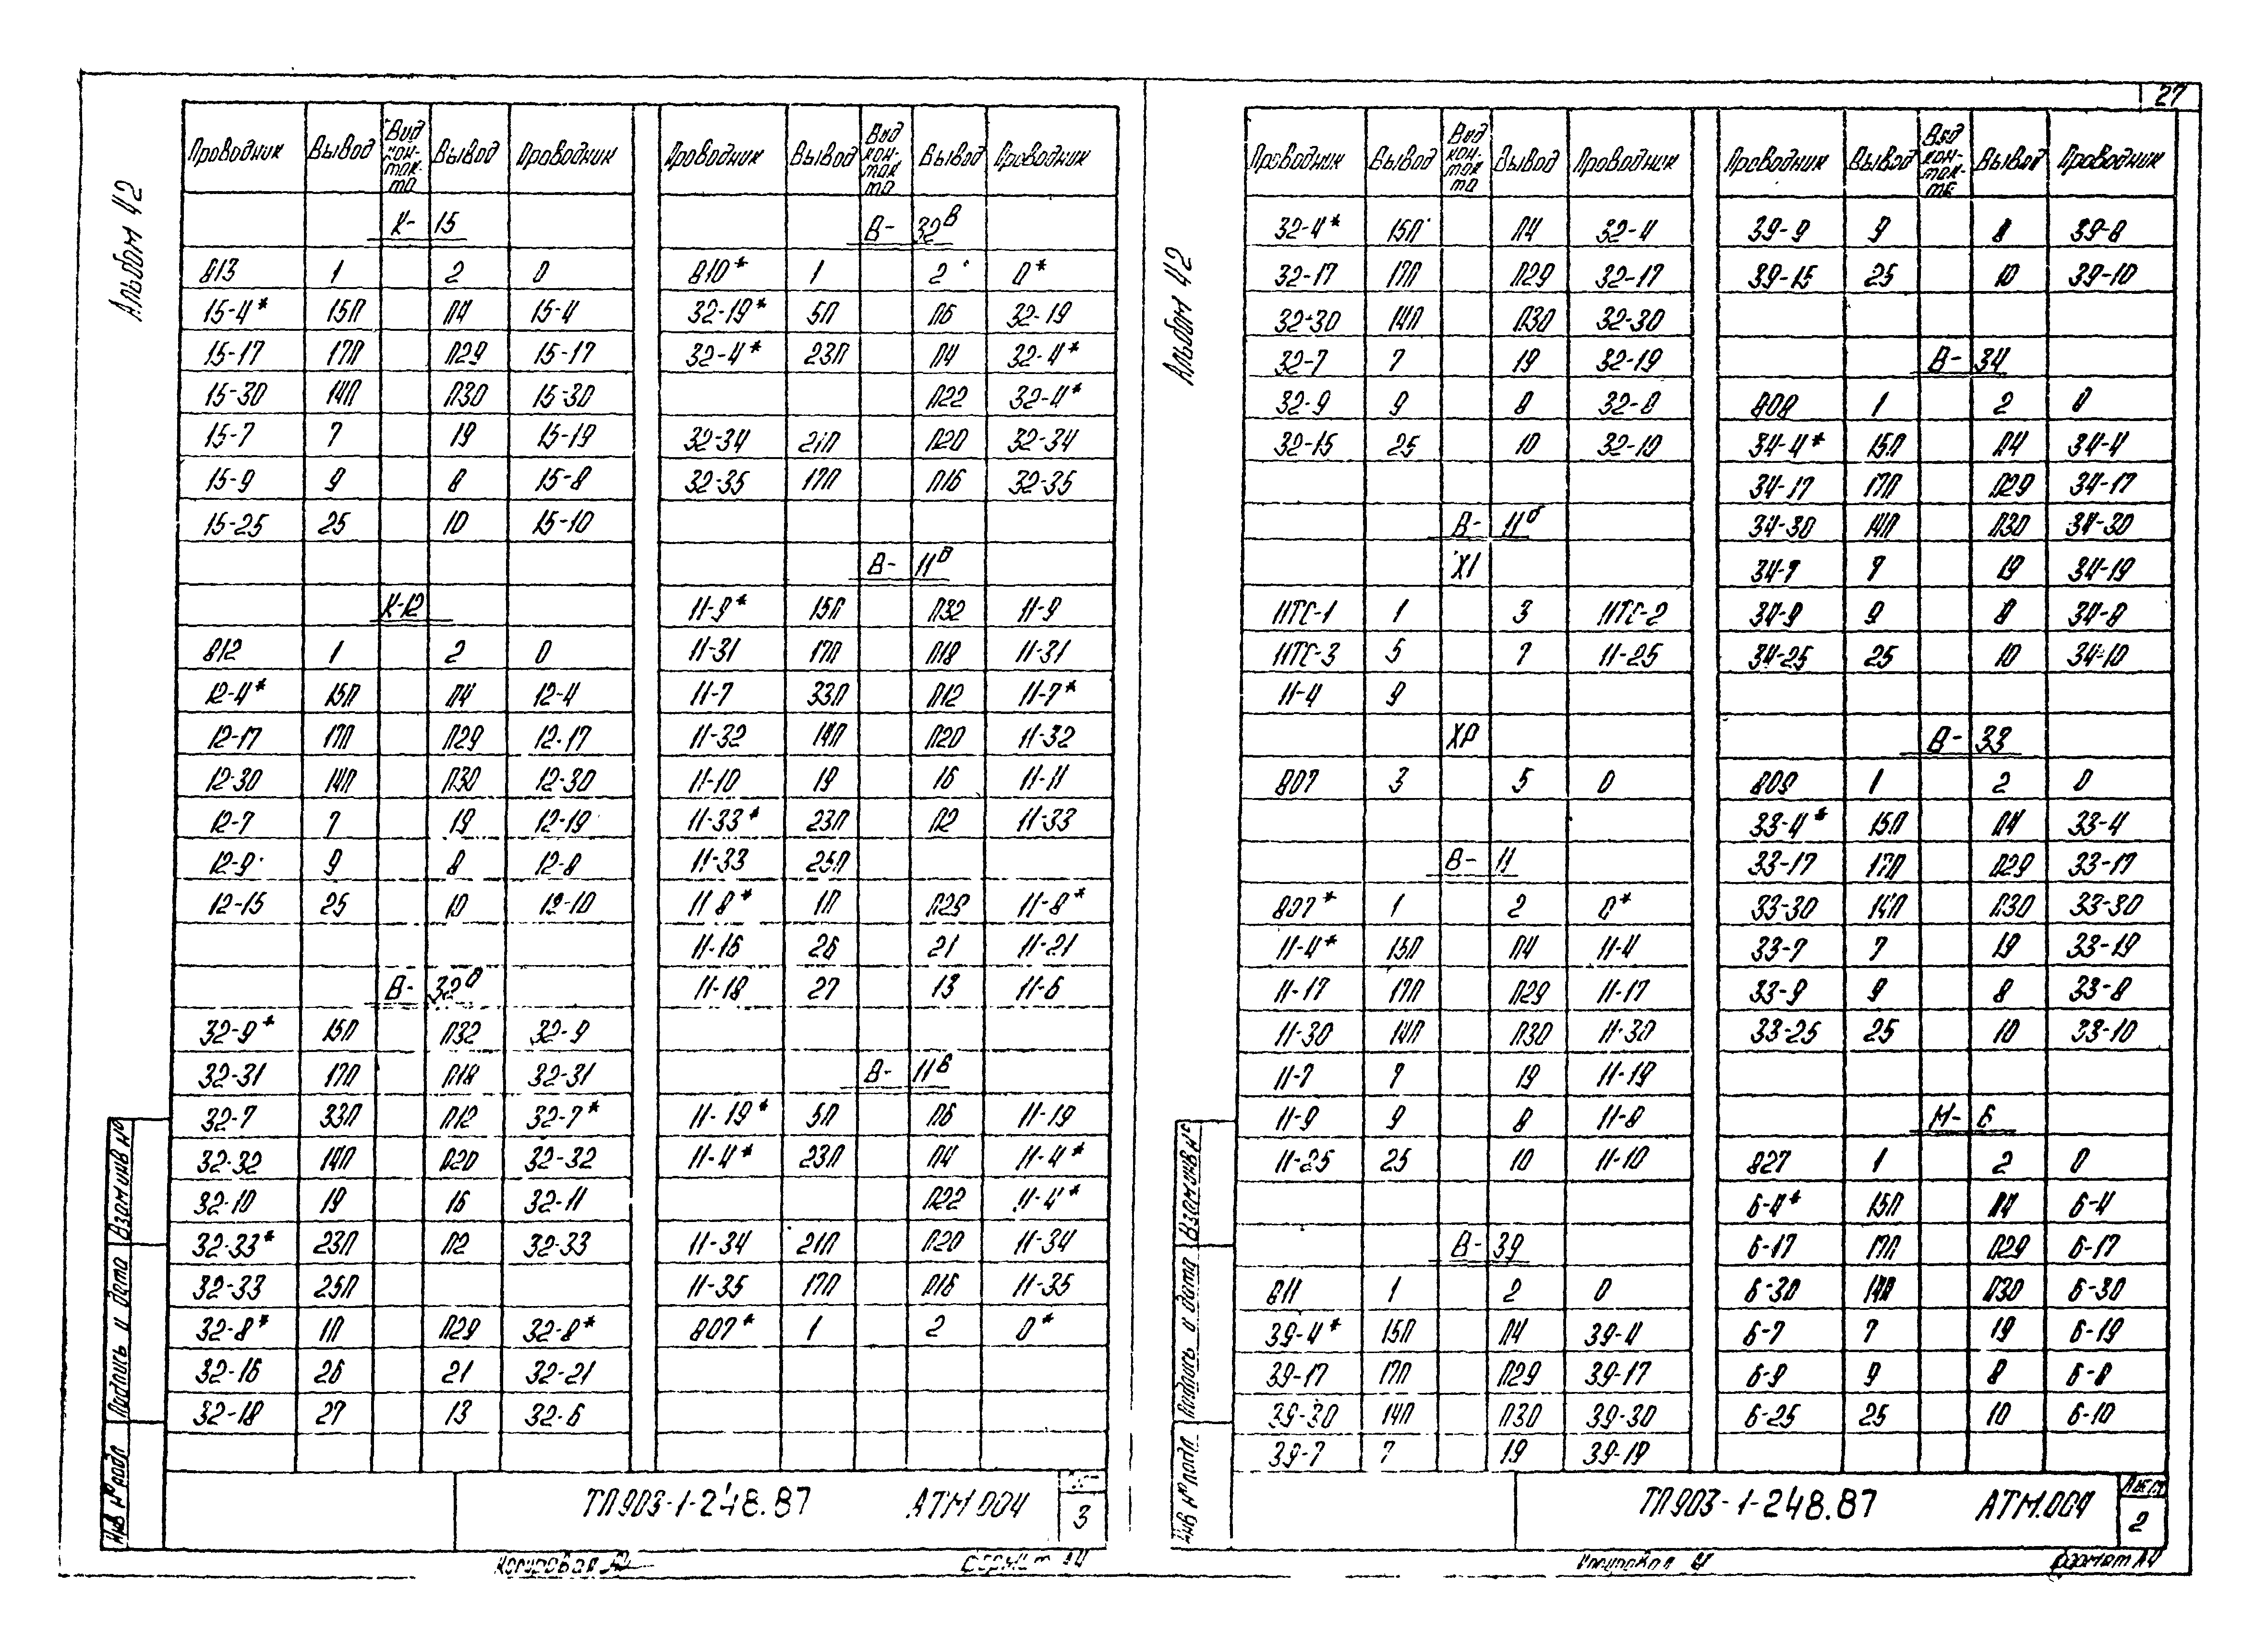 27
Альбом 42
Проводник Вывод Вид кон-так-та Вывод Проводник
К- 15
813 1 2 0
15-4* 15П П4 15-4
15-17 17П П29 15-17
15-30 14П П30 15-30
15-7 7 19 15-19
15-9 9 8 15-8
15-25 25 10 15-10
К-12
812 1 2 0
12-4* 15П П4 12-4
12-17 17П П29 12-17
12-30 14П П30 12-30
12-7 7 19 12-19
12-9 9 8 12-8
12-15 25 10 12-10
В- 32
32-9* 15П П32 32-9
32-31 17П П18 32-31
32-7 33П П12 32-7*
32-32 14П П20 32-32
32-10 19 16 32-11
32-33* 23П П2 32-33
32-33 25П
32-8* 1П П29 32-8*
32-16 26 21 32-21
32-18 27 13 32-6
Проводник Вывод Вид кон-так-та Вывод Проводник
В- 32В
810* 1 2 0*
32-19* 5П П6 32-19
32-4* 23П П4 32-4*
П22 32-4*
32-34 21П П20 32-34
32-35 17П П16 32-35
В- 11В
11-9* 15П П32 11-9
11-31 17П П18 11-31
11-7 33П П12 11-7*
11-32 14П П20 11-32
11-10 19 16 11-11
11-33* 23П П2 11-33
11-33 25П
11-8* 1П П29 11-8*
11-16 26 21 11-21
11-18 27 13 11-6
В- 11Б
11-19* 5П П6 11-19
11-4* 23П П4 11-4*
П22 11-4*
11-34 21П П20 11-34
11-35 17П П16 11-35
807* 1 2 0*
Инв № подл Подпись и дата Взам инв №
ТП903-1-248.87 АТМ.004
3
Копировал
Формат А4
Альбом 42
Проводник Вывод Вид кон-так-та Вывод Проводник
32-4* 15П П4 32-4
32-17 17П П29 32-17
32-30 14П П30 32-30
32-7 7 19 32-19
32-9 9 8 32-8
32-15 25 10 32-10
В- 11б
Х1
11ТС-1 1 3 11ТС-2
11ТС-3 5 7 11-25
11-4 9
ХР
807 3 5 0
В- 11
807* 1 2 0*
11-4* 15П П4 11-4
11-17 17П П29 11-17
11-30 14П П30 11-30
11-7 7 19 11-19
11-9 9 8 11-8
11-25 25 10 11-10
В- 39
811 1 2 0
39-4* 15П П4 39-4
39-17 17П П29 39-17
39-30 14П П30 39-30
39-7 7 19 39-19
Проводник Вывод Вид кон-так-та Вывод Проводник
39-9 9 8 39-8
39-15 25 10 39-10
В- 34
808 1 2 0
34-4* 15П П4 34-4
34-17 17П П29 34-17
34-30 14П П30 34-30
34-7 7 19 34-19
34-9 9 8 34-8
34-25 25 10 34-10
В- 33
809 1 2 0
33-4* 15П П4 33-4
33-17 17П П29 33-17
33-30 14П П30 33-30
33-7 7 19 33-19
33-9 9 8 33-8
33-25 25 10 33-10
М- 6
827 1 2 0
6-4* 15П П4 6-4
6-17 17П П29 6-17
6-30 14П П30 6-30
6-7 7 19 6-19
6-9 9 8 6-8
6-25 25 10 6-10
Инв № подл Подпись и дата Взам инв №
ТП903-1-248.87 АТМ.004
Лист
2
Копировал
Формат А4